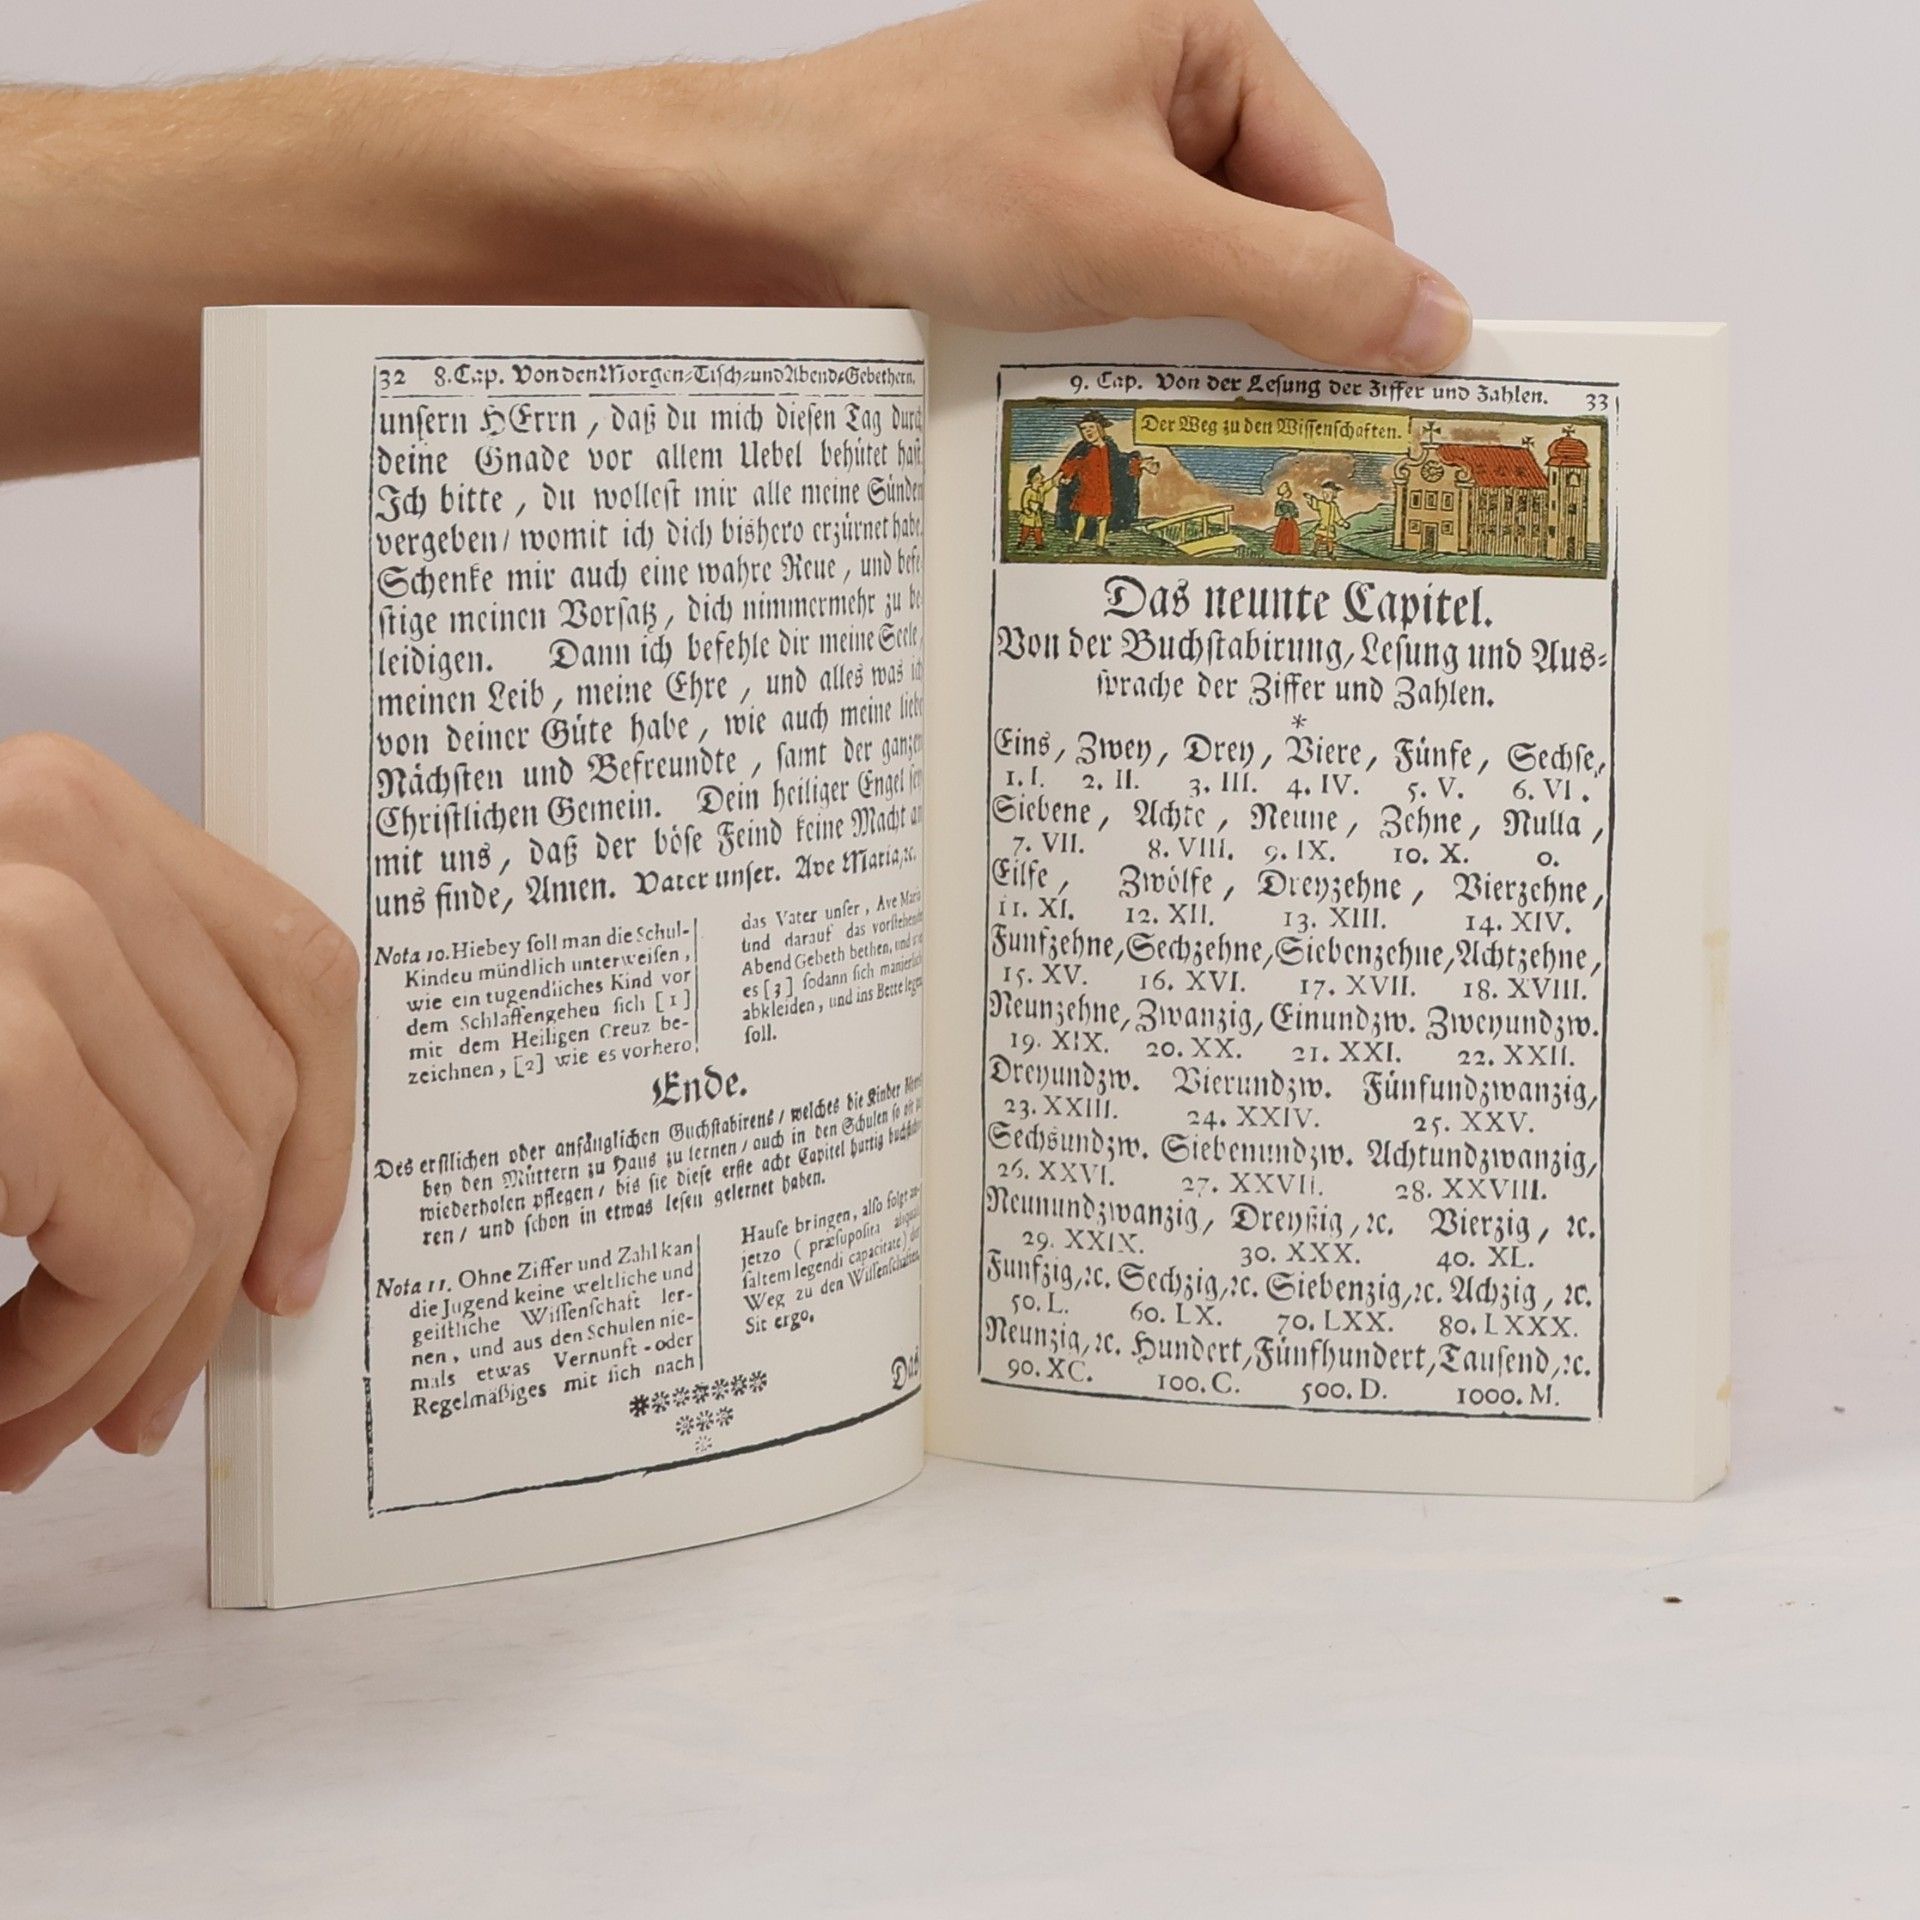 32 8. Cap. Von den Morgen⸗Tisch⸗und Abend⸗Gebethern.
unsern HErrn, daß du mich diesen Tag durch
deine Gnade vor allem Uebel behütet hast.
Ich bitte, du wollest mir alle meine Sünden
vergeben/ womit ich dich bishero erzürnet habe.
Schenke mir auch eine wahre Reue, und befe⸗
stige meinen Vorsatz, dich nimmermehr zu be⸗
leidigen. Dann ich befehle dir meine Seele,
meinen Leib, meine Ehre, und alles was ich
von deiner Güte habe, wie auch meine liebe
Nächsten und Befreundte, samt der ganzen
Christlichen Gemein. Dein heiliger Engel sey
mit uns, daß der böse Feind keine Macht an
uns finde, Amen. Vater unser. Ave Maria, ꝛc.
Nota 10. Hiebey soll man die Schul-
Kindeu mündlich unterweisen,
wie ein tugendliches Kind vor
dem Schlaffengehen sich [1]
mit dem Heiligen Creuz be-
zeichnen, [2] wie es vorhero
das Vater unser, Ave Maria
und darauf das vorstehende
Abend Gebeth bethen, und
es [3] sodann sich manierlich
abkleiden, und ins Bette legen
soll.
Ende.
Des erstlichen oder anfänglichen Buchstabirens/ welches die Kinder
bey den Müttern zu Haus zu lernen/ auch in den Schulen so oft zu
wiederholen pflegen/ bis sie diese erste acht Capitel hurtig buchstabi⸗
ren/ und schon in etwas lesen gelernet haben.
Nota 11. Ohne Ziffer und Zahl kan
die Jugend keine weltliche und
geistliche Wissenschaft ler-
nen, und aus den Schulen nie-
mals etwas Vernunft-oder
Regelmäßiges mit sich nach
Hause bringen, also folget
jetzo (præsuposita aliquali
saltem legendi capacitate) der
Weg zu den Wissenschaften.
Sit ergo.
Das
9. Cap. Von der Lesung der Ziffer und Zahlen. 33
Der Weg zu den Wissenschaften.
Das neunte Capitel.
Von der Buchstabirung, Lesung und Aus⸗
sprache der Ziffer und Zahlen.
*
Eins, Zwey, Drey, Viere, Fünfe, Sechse,
1. I. 2. II. 3. III. 4. IV. 5. V. 6. VI.
Siebene, Achte, Neune, Zehne, Nulla,
7. VII. 8. VIII. 9. IX. 10. X. 0.
Eilfe, Zwölfe, Dreyzehne, Vierzehne,
11. XI. 12. XII. 13. XIII. 14. XIV.
Funfzehne, Sechzehne, Siebenzehne, Achtzehne,
15. XV. 16. XVI. 17. XVII. 18. XVIII.
Neunzehne, Zwanzig, Einundzw. Zweyundzw.
19. XIX. 20. XX. 21. XXI. 22. XXII.
Dreyundzw. Vierundzw. Fünfundzwanzig,
23. XXIII. 24. XXIV. 25. XXV.
Sechsundzw. Siebenundzw. Achtundzwanzig,
26. XXVI. 27. XXVII. 28. XXVIII.
Neunundzwanzig, Dreyßig, ꝛc. Vierzig, ꝛc.
29. XXIX. 30. XXX. 40. XL.
Funfzig, ꝛc. Sechzig, ꝛc. Siebenzig, ꝛc. Achzig, ꝛc.
50. L. 60. LX. 70. LXX. 80. LXXX.
Neunzig, ꝛc. Hundert, Fünfhundert, Tausend, ꝛc.
90. XC. 100. C. 500. D. 1000. M.